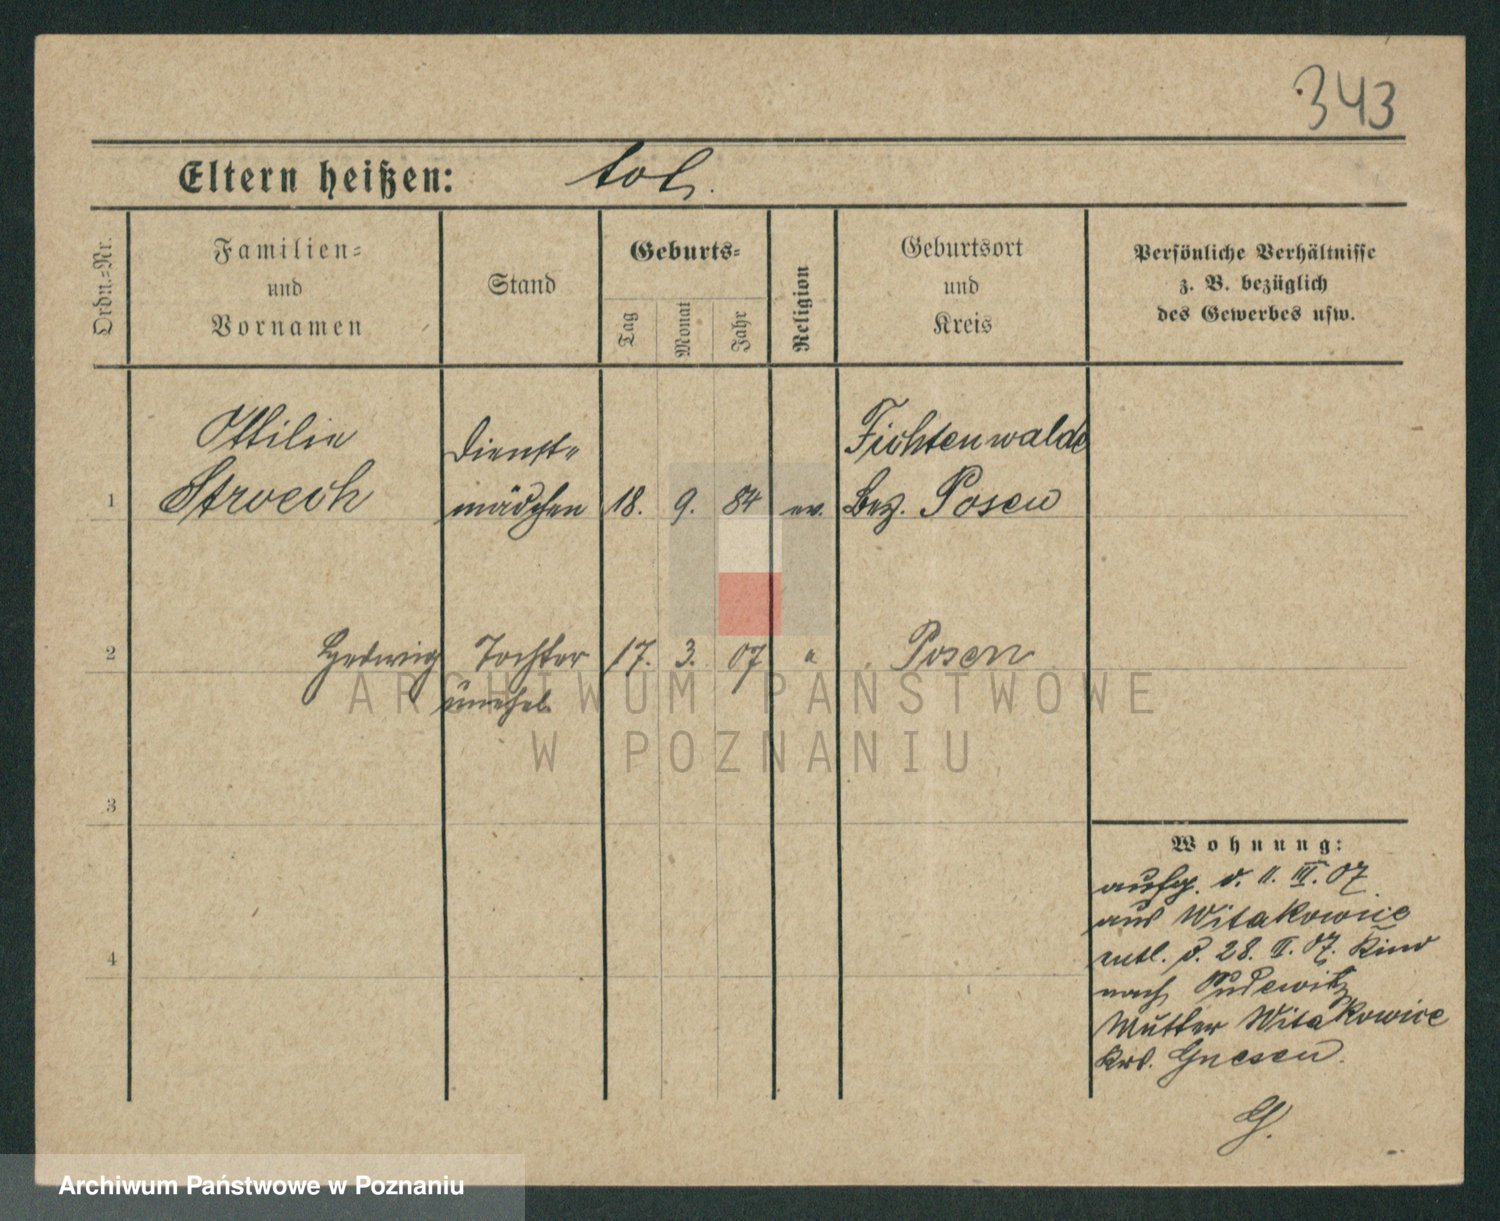 343
Eltern heißen: led.
Ordn.-Nr.
Familien-
und
Vornamen
Stand
Geburts-
Tag
Monat
Jahr
Religion
Geburtsort
und
Kreis
Persönliche Verhältnisse
z. B. bezüglich
des Gewerbes usw.
Ottilie Dienst- Fichtenwalde
1 Stroech mädchen 18. 9. 84 ev. Bez. Posen
2 Hedwig Tochter 17. 3. 07 " Posen
unehel.
ARCHIWUM PAŃSTWOWE
W POZNANIU
3
Wohnung:
aufg. d. 11. III. 07
aus Witakowice
entl. d. 28. 07. Kind
4
nach Pudewitz
Mutter Witakowice
Krs. Gnesen.
G.
Archiwum Państwowe w Poznaniu